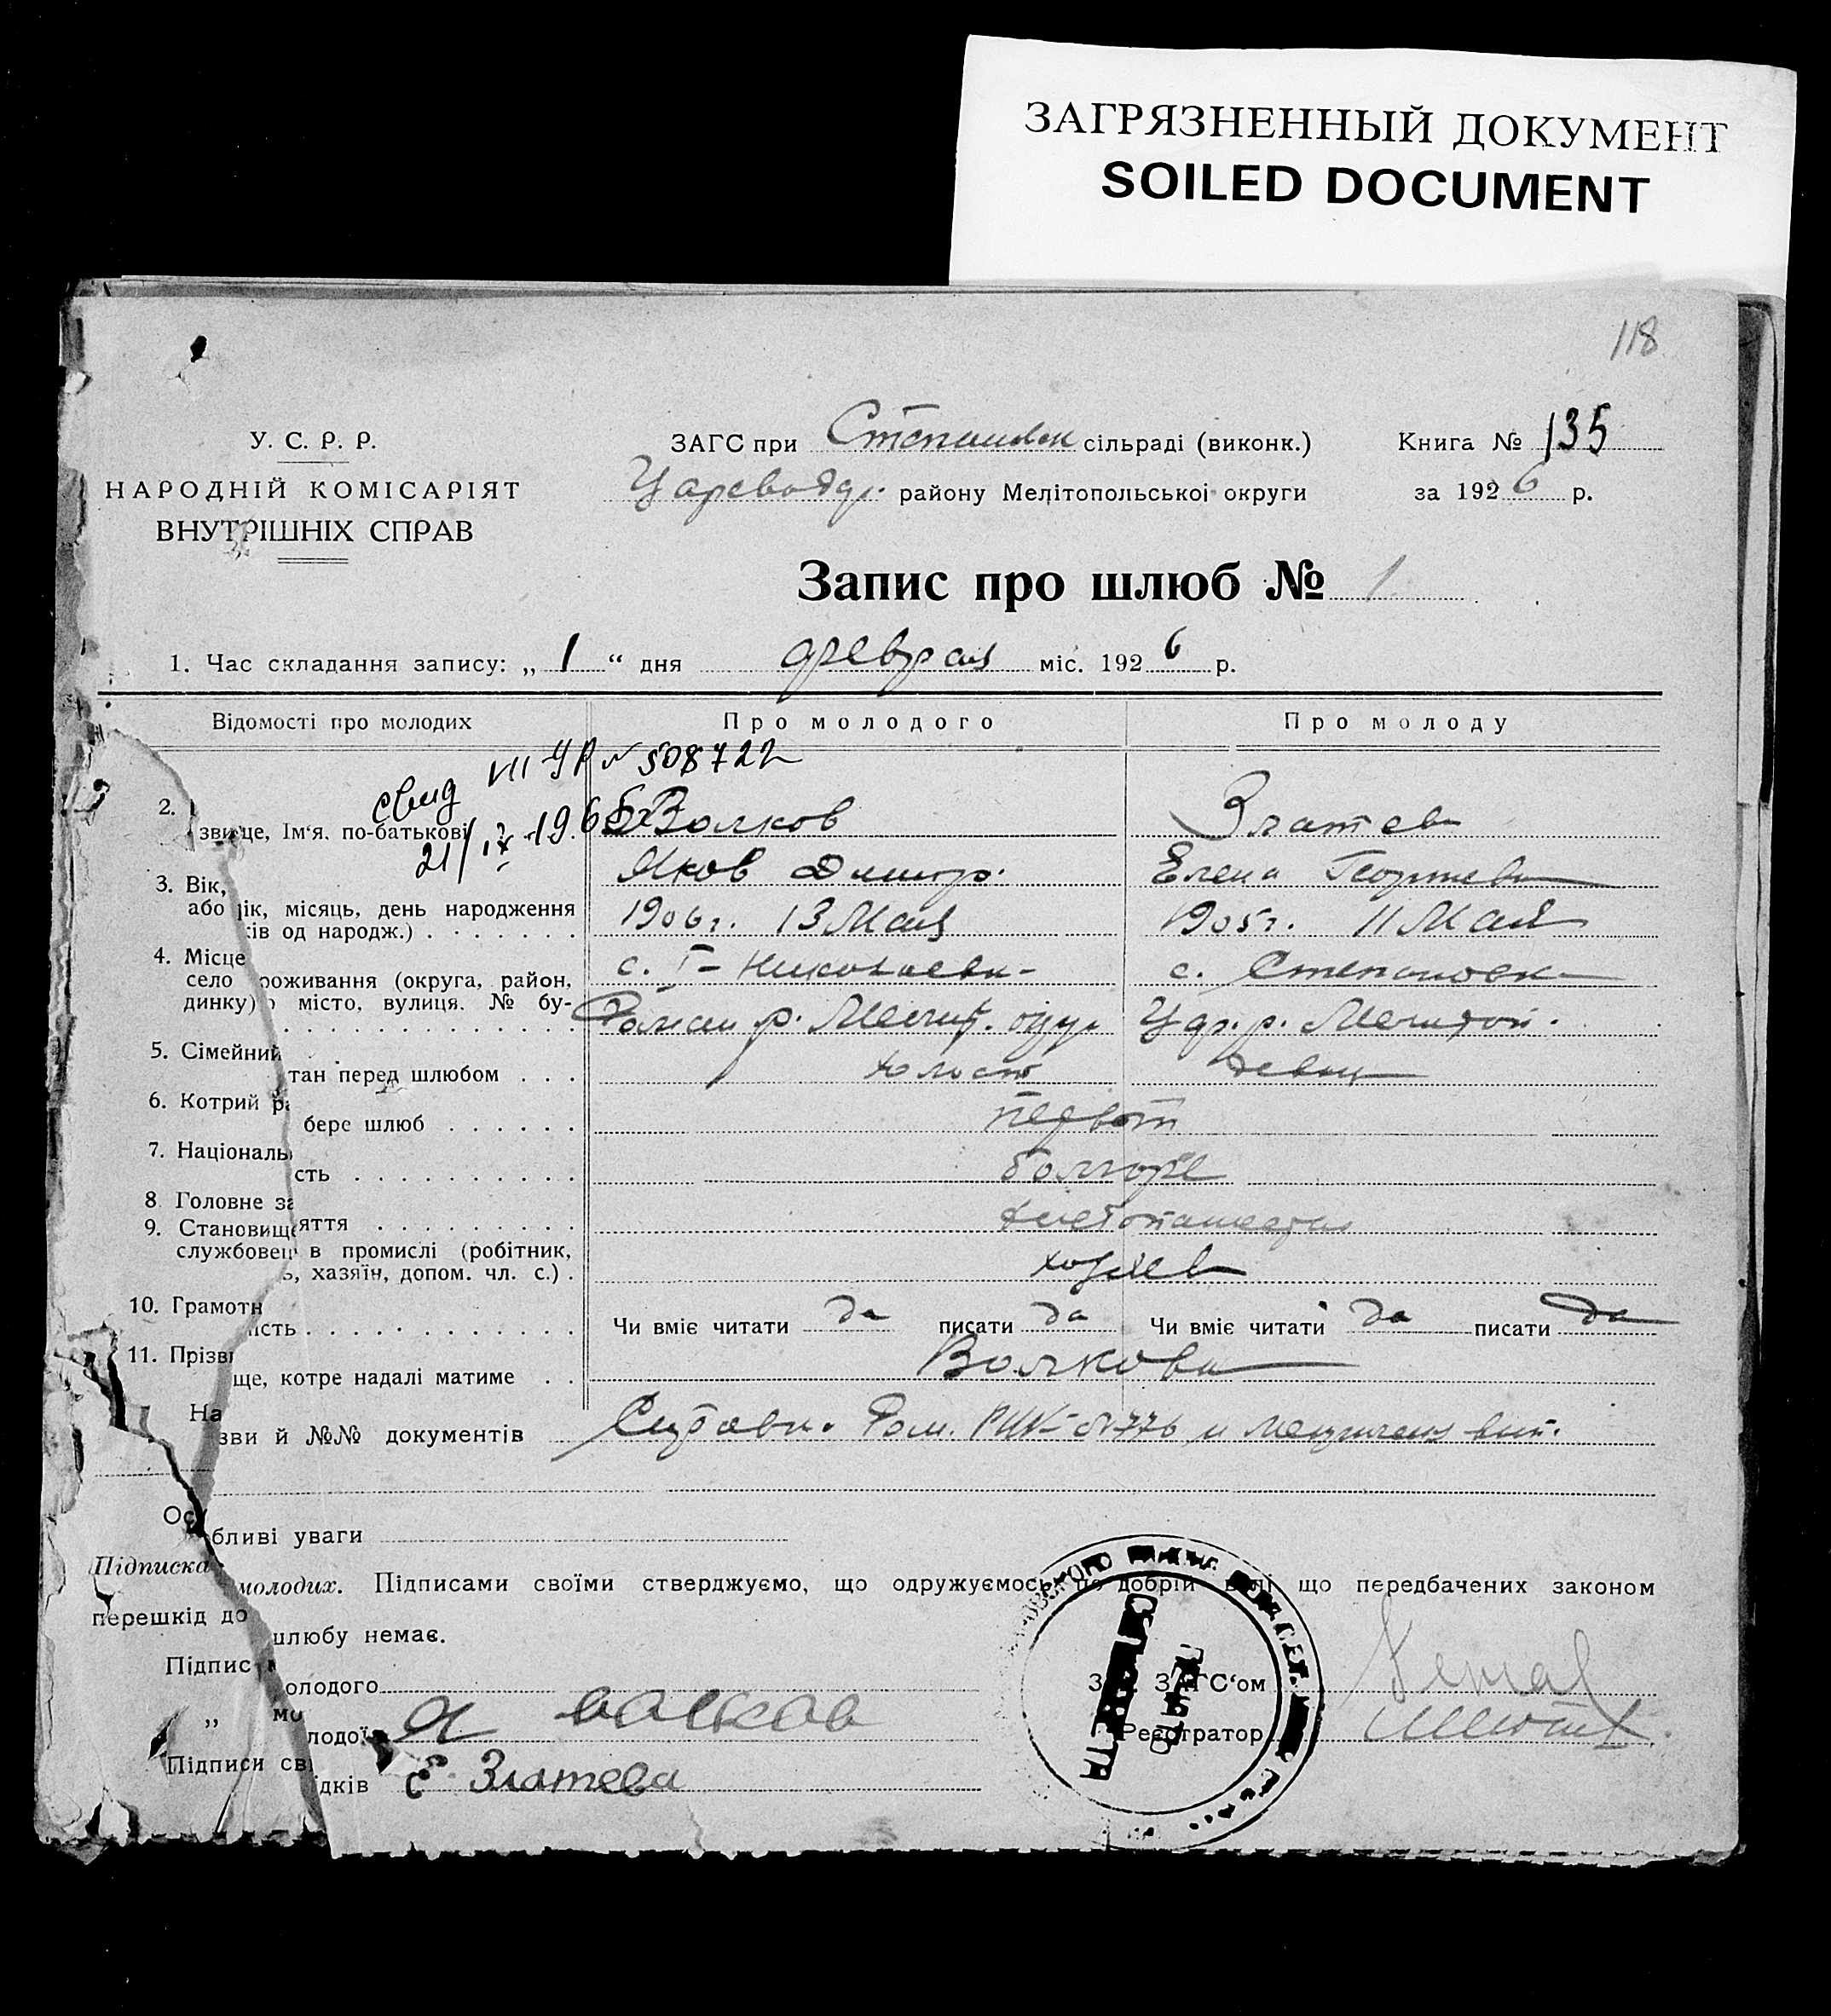 ЗАГРЯЗНЕННЫЙ ДОКУМЕНТ
SOILED DOCUMENT
118
У. С. Р. Р.
НАРОДНІЙ КОМІСАРІЯТ
ВНУТРІШНІХ СПРАВ
ЗАГС при Степановск сільраді (виконк.)
Книга № 135
района Мелітопольської округи
за 1926 р.
Запис про шлюб № 1
1. Час складання запису: „ 1 “ дня февраля міс. 1926 р.
Відомості про молодих
Про молодого
Про молоду
свид VII УР № 508722
21/IX-1965г
2. звище, Ім‘я. по-батькові
Волков
Златева
Яков Дмитр.
Елена Георгиевн
3. Вік,
або рік, місяць, день народження
ків од народж.)
1906г. 13 Мая
1905г. 11 Мая
4. Місце
село проживання (округа, район,
динку) місто, вулиця. № бу-
с. Николаевк-
с. Степановк
р. Мелит. окру
р. Мелитоп.
5. Сімейний
стан перед шлюбом
холост
девиц
6. Котрий ра
бере шлюб
первый
7. Національн
ість
болгоре
8 Головне за
няття
хлебопашество
9. Становище
службовец в промислі (робітник,
ь, хазяїн, допом. чл. с.)
хозяев
10. Грамотн
ість
Чи вміє читати да писати да
Чи вміє читати да писати да
11. Прізви
ще, котре надалі матиме
Волкови
На
зви й №№ документів
Справк. Ром. РИК №776 и вып.
Осо
бливі уваги
Підписка молодих. Підписами своїми стверджуємо, що одружуємось по добрій волі що передбачених законом
перешкід до шлюбу немає.
Підпис молодого
„ молодої
Я волков
Підписи свідків
Е Златева
Зав. ЗАГС‘ом
Реєстратор